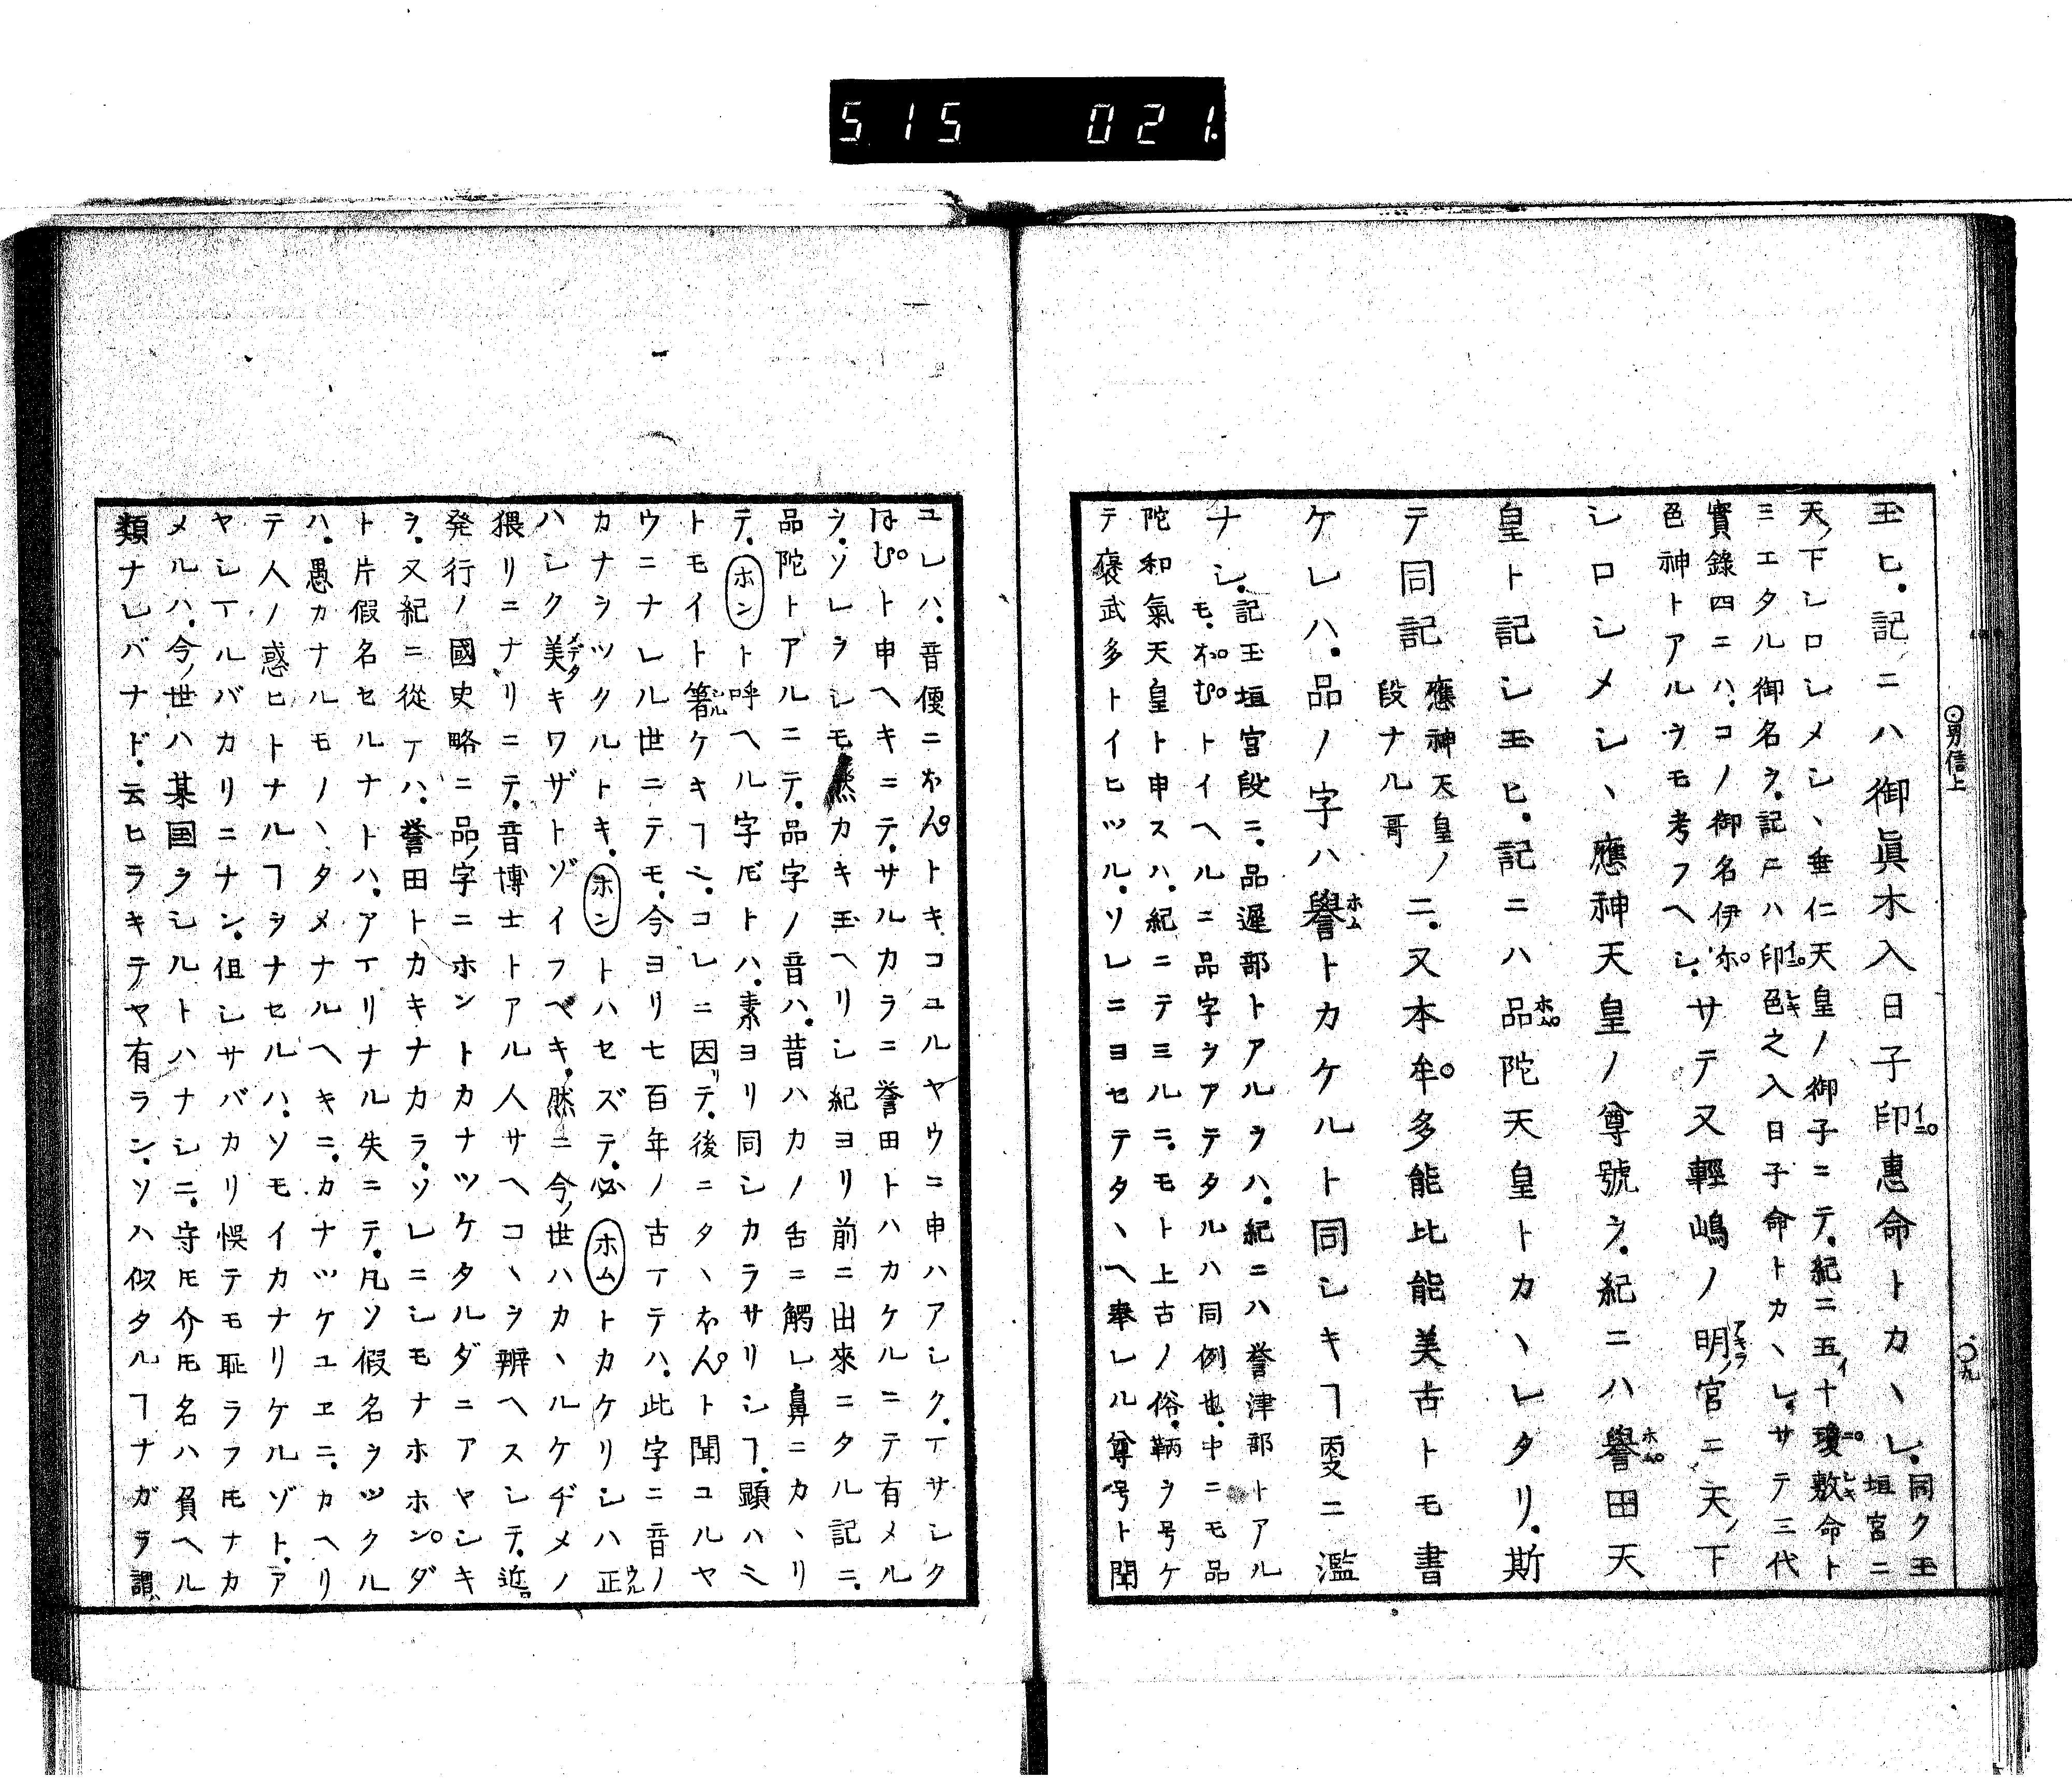 515 021.
男信上
〇九
玉ヒ。記ニハ御眞木入日子印惠命トカヽレ。同ク玉
垣宮ニ
天ノ下シロシメシヽ垂仁天皇ノ御子ニテ。紀ニ五十瓊敷命ト
ミエタル御名ヲ。記ニハ印色之入日子命トカヽレ。サテ三代
實錄四ニハ。コノ御名伊尓
色神トアルヲモ考フヘシ。サテ又輕嶋ノ明ノ宮ニ天ノ下
シロシメシヽ應神天皇ノ尊號ヲ。紀ニハ譽田天
皇ト記シ玉ヒ。記ニハ品陀天皇トカヽレタリ。斯
テ同記應神天皇ノ
段ナル哥ニ。又本牟多能比能美古トモ書
ケレハ。品ノ字ハ譽トカケルト同シキヿ更ニ濫
ナシ。記玉垣宮段ニ。品遲部トアルヲハ。紀ニハ誉津部トアル
モ。ホムトイヘルニ品字ヲアテタルハ同例也。中ニモ品
陀和氣天皇ト申スハ。紀ニテミルニ。モト上古ノ俗。鞆ヲ号ケ
テ褒武多トイヒツル。ソレニヨセテタヽヘ奉レル尊号ト聞
ユレハ。音便ニほんトキコユルヤウニ申ハアシク。正サシク
ほむト申ヘキニテ。サルカラニ誉田トハカケルニテ有メル
ヲ。ソレヲシモ然カキ玉ヘリシ紀ヨリ前ニ出來ニタル記ニ。
品陀トアルニテ。品字ノ音ハ。昔ハカノ舌ニ觸レ鼻ニカヽリ
テ。ホント呼ヘル字𪜈トハ。素ヨリ同シカラサリシヿ。顕ハニ
トモイト著ケキヿニ。コレニ因テ。後ニタヽほんト聞ユルヤ
ウニナレル世ニテモ。今ヨリ七百年ノ古ヘテハ。此字ニ音ノ
カナヲツクルトキ。ホントハセズテ。必ホムトカケリシハ正
ハシク美キワザトゾイフベキ。然ニ今ノ世ハカヽルケヂメノ
猥リニナリニテ。音博士トアル人サヘコヽヲ辨ヘスシテ。近
発行ノ國史略ニ品ノ字ニホントカナツケタルダニアヤシキ
ヲ。又紀ニ從テハ。誉田トカキナカラ。ソレニシモナホホンダ
ト片假名セルナトハ。アマリナル失ニテ。凡ソ假名ヲツクル
ハ。愚カナルモノヽタメナルヘキニ。カナツケユヱニ。カヘリ
テ人ノ惑ヒトナルヿヲナセルハ。ソモイカナリケルゾト。ア
ヤシマルバカリニナン。但シサバカリ悞テモ耻ラフ𪜈ナカ
メルハ。今ノ世ハ某国ヲシルトハナシニ。守𪜈介𪜈名ハ負ヘル
類ナレバナド。云ヒラキテヤ有ラン。ソハ似タルヿナガラ謂